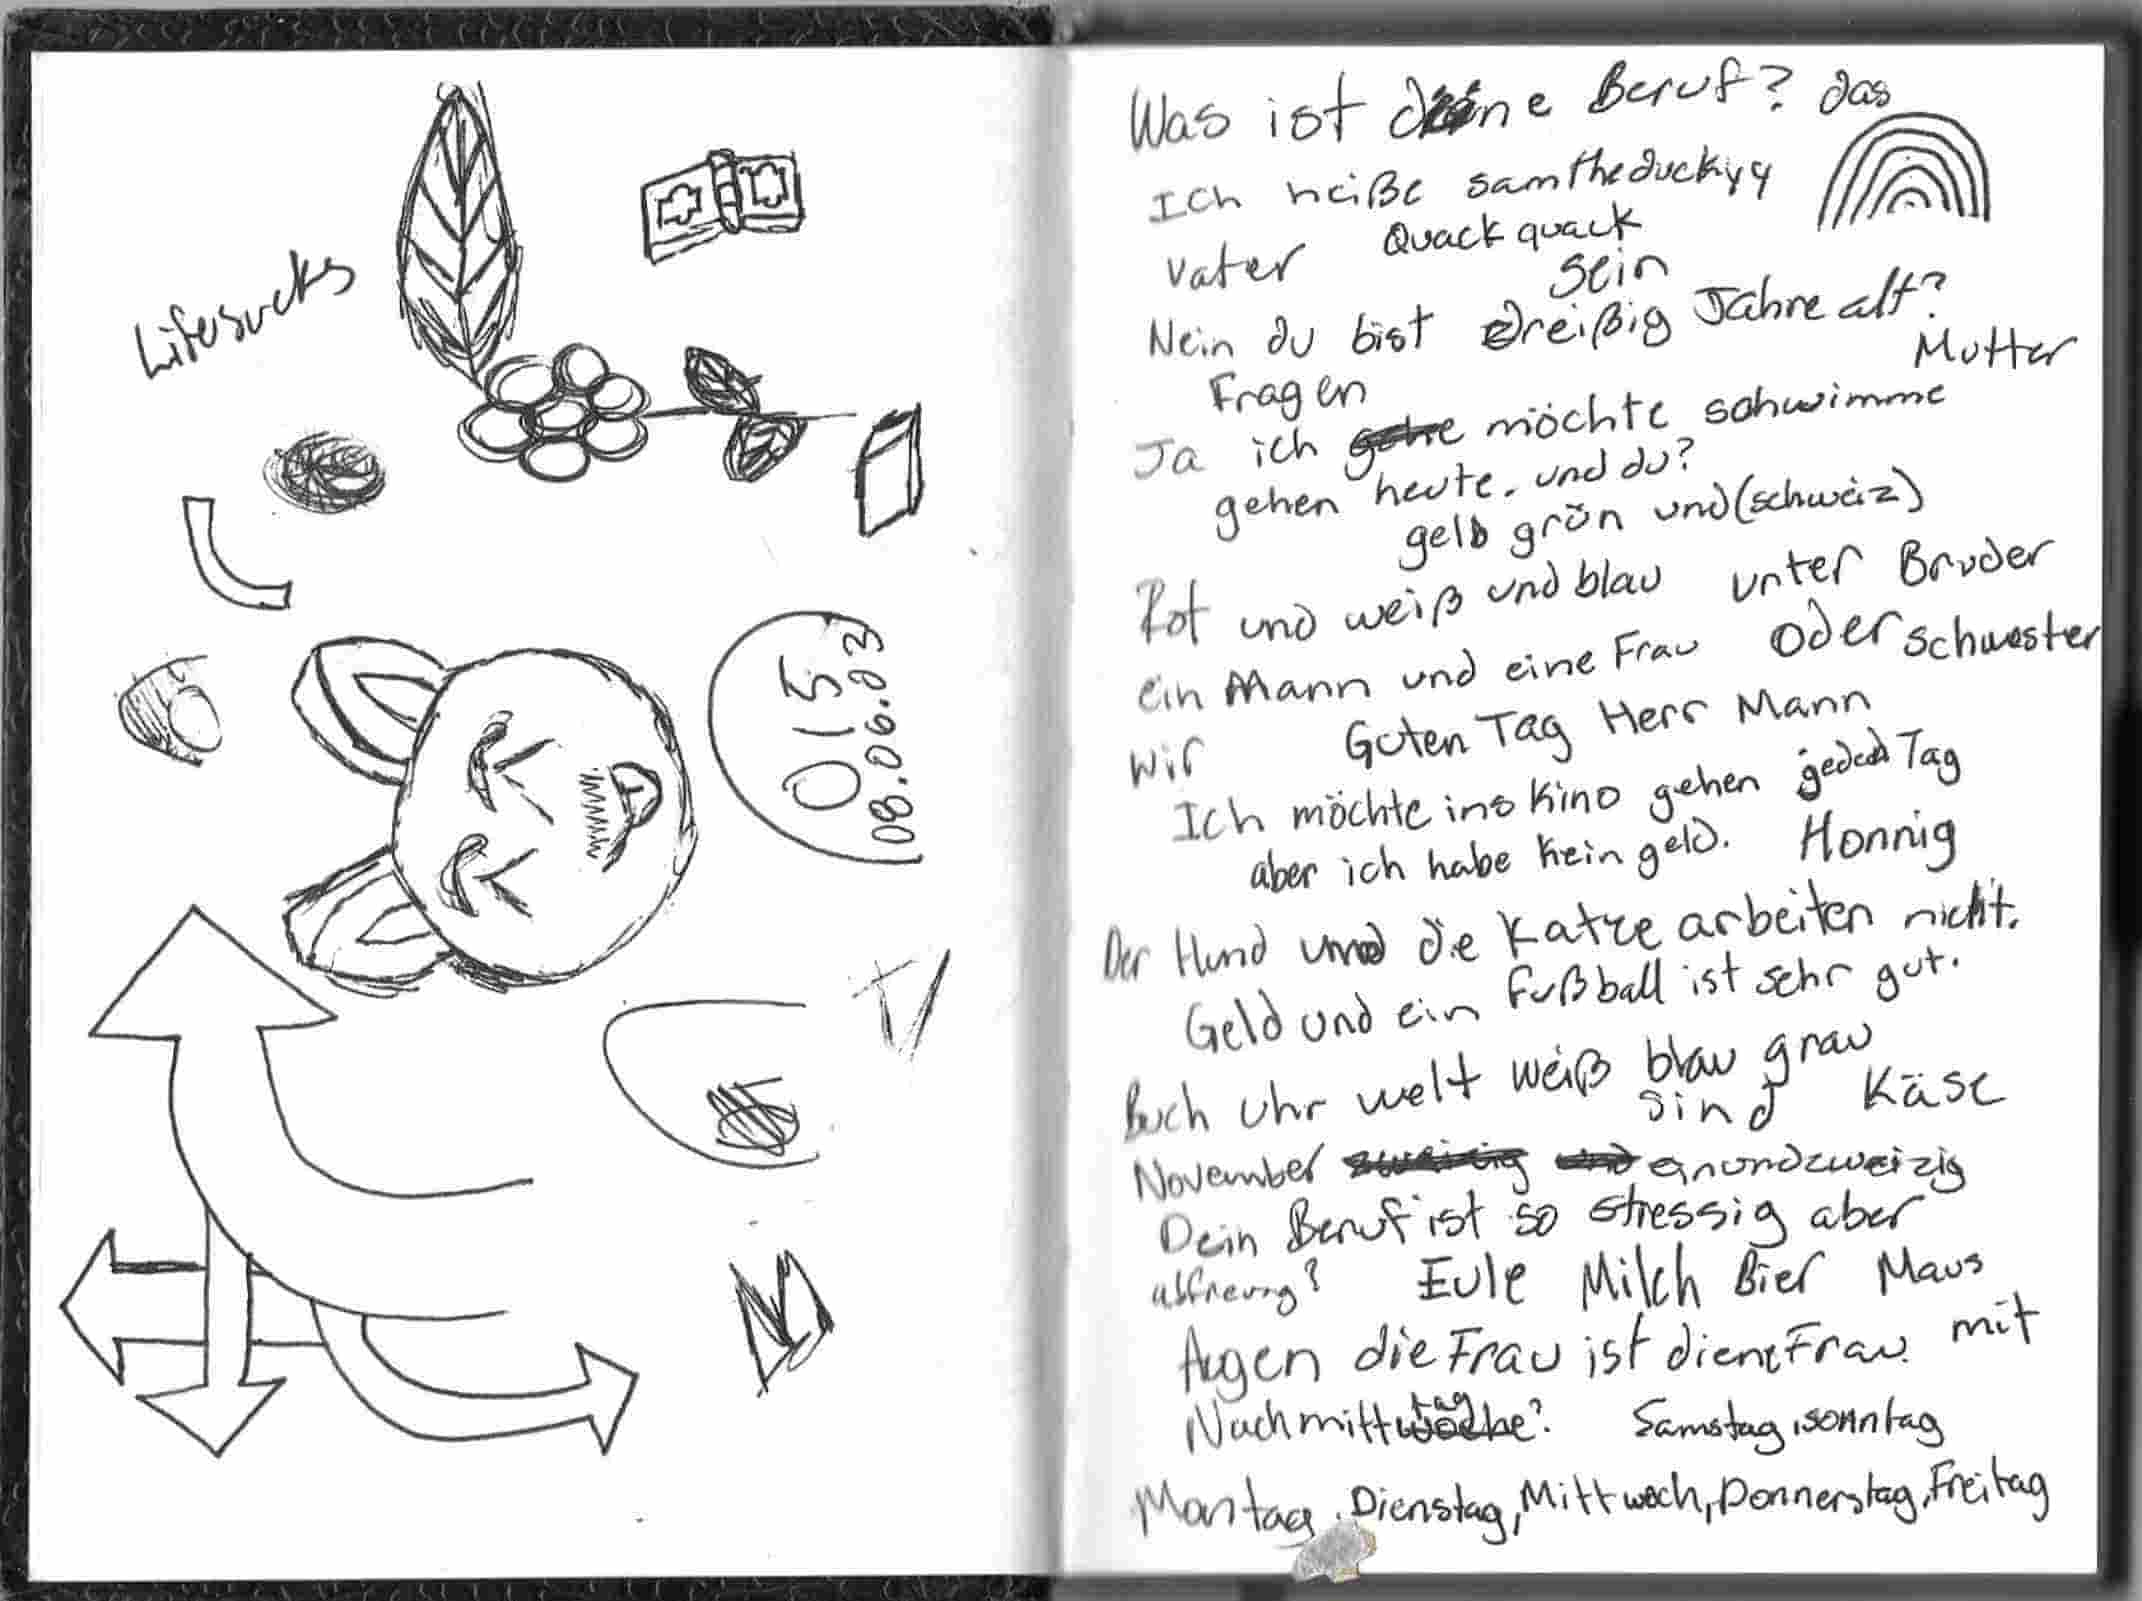 Lifesucks
015
08.06.03
Was ist deine Beruf? das
Ich heiße samtheduckyy
Quack quack
Vater
sein
Nein du bist dreißig Jahre alt?
Mutter
Fragen
Ja ich möchte schwimme
gehen heute. und du?
gelb grün und (schweiz)
Rot und weiß und blau unter Bruder
ein Mann und eine Frau oder schwester
Wir Guten Tag Herr Mann
Ich möchte ins Kino gehen jeden Tag
aber ich habe kein geld. Honnig
Der Hund und die Katze arbeiten nicht.
Geld und ein Fußball ist sehr gut.
Buch Uhr welt weiß blau grau
sind Käse
November einundzweizig
Dein Beruf ist so stressig aber
Eule Milch Bier Maus
Augen die Frau ist diene Frau. mit
Nachmitttag? Samstag, sonntag
Montag, Dienstag, Mittwoch, Donnerstag, Freitag